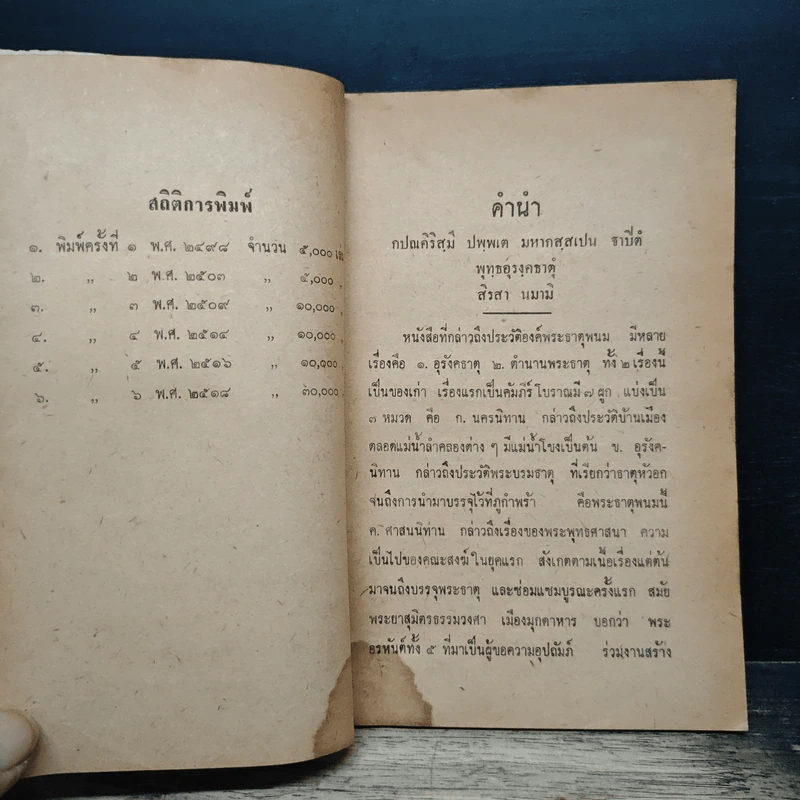 สถิติการพิมพ์
๑. พิมพ์ครั้งที่ ๑ พ.ศ. ๒๔๙๘ จำนวน ๕,๐๐๐
๒. ,, ๒ พ.ศ. ๒๕๐๓ ,, ๕,๐๐๐ ,,
๓. ,, ๓ พ.ศ. ๒๕๐๙ ,, ๑๐,๐๐๐ ,,
๔. ,, ๔ พ.ศ. ๒๕๑๔ ,, ๑๐,๐๐๐ ,,
๕. ,, ๕ พ.ศ. ๒๕๑๖ ,, ๑๐,๐๐๐ ,,
๖. ,, ๖ พ.ศ. ๒๕๑๘ ,, ๓๐,๐๐๐ ,,
คำนำ
กปณคิริสฺมึ ปพฺพเต มหากสฺสเปน ฐาปิตํ
พุทฺธอุรงฺคธาตุํ
สิรสา นมามิ
หนังสือที่กล่าวถึงประวัติองค์พระธาตุพนม มีหลาย
เรื่องคือ ๑. อุรังคธาตุ ๒. ตำนานพระธาตุ ทั้ง ๒ เรื่องนี้
เป็นของเก่า เรื่องแรกเป็นคัมภีร์ โบราณมี ๗ ผูก แบ่งเป็น
๓ หมวด คือ ก. นครนิทาน กล่าวถึงประวัติบ้านเมือง
ตลอดแม่น้ำลำคลองต่าง ๆ มีแม่น้ำโขงเป็นต้น ข. อุรังค-
นิทาน กล่าวถึงประวัติพระบรมธาตุ ที่เรียกว่าธาตุหัวอก
จนถึงการนำมาบรรจุไว้ที่ภูกำพร้า คือพระธาตุพนมนี้
ค. ศาสนนิทาน กล่าวถึงเรื่องของพระพุทธศาสนา ความ
เป็นไปของคณะสงฆ์ ในยุคแรก สังเกตตามเนื้อเรื่องแต่ต้น
มาจนถึงบรรจุพระธาตุ และซ่อมแซมบูรณะครั้งแรก สมัย
พระยาสุมิตรธรรมวงศา เมืองมุกดาหาร บอกว่า พระ
อรหันต์ทั้ง ๕ ที่มาเป็นผู้ขอความอุปถัมภ์ ร่วมงานสร้าง